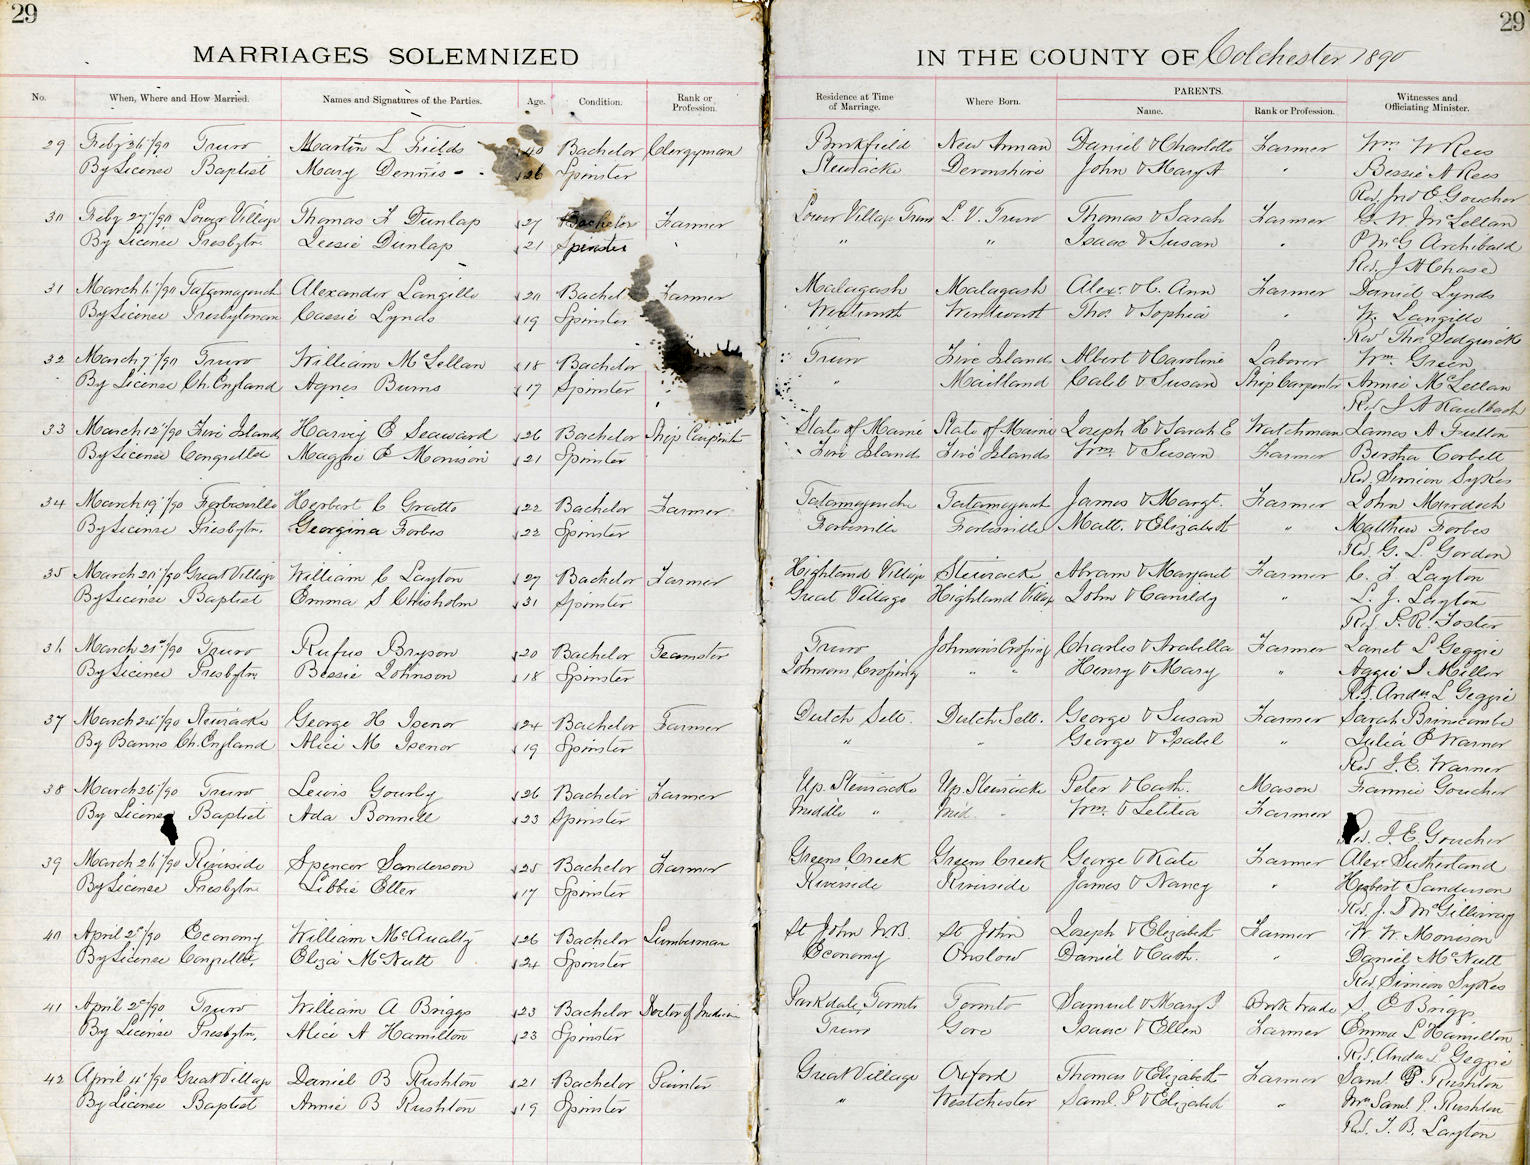 29
29
MARRIAGES SOLEMNIZED
IN THE COUNTY OF Colchester 1890
No. When, Where and How Married. Names and Signatures of the Parties. Age. Condition. Rank or Profession. Residence at Time of Marriage. Where Born. PARENTS. Name. Rank or Profession. Witnesses and Officiating Minister.
29 Feby 26/90 Truro Martin L Fields 40 Bachelor Clergyman Brookfield New Annan Daniel & Charlotte Farmer Wm W Rees
By License Baptist Mary Dennis 26 Spinster Stewiacke Devonshire John & Mary A " Bessie A Rees
Rev. Jno E. Goucher
30 Feby 27/90 Lower Village Thomas F Dunlap 27 Bachelor Farmer Lower Village Truro L. V. Truro Thomas & Sarah Farmer G. W McLellan
By License Presbytn Dunlap 21 Spinster " " Isaac & Susan " P McG Archibald
Rev. J A Chase
31 March 6/90 Tatamagouch Alexander Langille 20 Bachelor Farmer Malagash Malagash Alexr & C. Ann Farmer Daniel Lynds
By License Presbyterian Cassie Lynds 19 Spinster Wentworth Wentworth Thos & Sophia " W. Langille
Rev Thos Sedgwick
32 March 7/90 Truro William McLellan 18 Bachelor Truro Five Island Albert & Caroline Laborer Wm Green
By License Ch. England Agnes Burns 17 Spinster " Maitland Caleb & Susan Ship Carpenter Annie McLellan
Rev J A Kaulbach
33 March 12/90 Five Island Harvey E Seaward 26 Bachelor Ship Carpenter State of Maine State of Maine Joseph H & Sarah E Watchman James A Fulton
By License Maggie P Morrison 21 Spinster Five Islands Five Islands Wm & Susan Farmer Bertha Corbett
Rev Simeon Sykes
34 March 19/90 Forbesville Herbert C Gratto 22 Bachelor Farmer Tatamagouche Tatamagouch James & Margt. Farmer John Murdoch
By License Presbytn. Georgina Forbes 22 Spinster Forbesville Forbesville Matt. & Elizabeth " Matthew Forbes
Rev. G. L. Gordon
35 March 20/90 Great Village William C Layton 27 Bachelor Farmer Highland Village Stewiacke Abram & Margaret Farmer C. F Layton
By License Baptist Emma S Chisholm 31 Spinster Great Village Highland Village John & " L. J. Layton
Rev. Foster
36 March 21/90 Truro Rufus Bryson 20 Bachelor Teamster Truro Johnsons Crossing Charles & Arabella Farmer Janet L Geggie
By License Presbytn Bessie Johnson 18 Spinster Johnsons Crossing " " Henry & Mary " Aggie I Miller
Rev. Andw L Geggie
37 March 24/90 Stewiacke George H Isenor 24 Bachelor Farmer Dutch Sett. Dutch Sett. George & Susan Farmer Sarah Brinecombe
By Banns Ch. England Alice M Isenor 19 Spinster " " George & Isabel " Julia P Warner
Rev J. E. Warner
38 March 26/90 Truro Lewis Gourley 26 Bachelor Farmer Up. Stewiacke Up. Stewiacke Peter & Cath. Mason Fannie Goucher
By License Baptist Ada Bonnell 23 Spinster Middle " Mid. " Wm. & Letitia Farmer
Rev. J. E. Goucher
39 March 26/90 Riverside Spencer Sanderson 25 Bachelor Farmer Greens Creek Greens Creek George & Kate Farmer Alexr Sutherland
By License Presbytn Libbie Eller 17 Spinster Riverside Riverside James & Nancy " Herbert Sanderson
Rev. J. D McGillivray
40 April 2/90 Economy William 26 Bachelor Lumberman St John N.B. St John Joseph & Elizabeth Farmer W W Morrison
By License Eliza McNutt 24 Spinster Economy Onslow Daniel & Cath. " Daniel McNutt
Rev. Simeon Sykes
41 April 2/90 Truro William A Briggs 23 Bachelor Doctor of Medicine Parkdale, Toronto Toronto Samuel & Mary J Book trade S. E Briggs
By License Presbytn. Alice A Hamilton 23 Spinster Truro Gore Isaac & Ellen Farmer Emma L Hamilton
Rev. Andw L Geggie
42 April 4/90 Great Village Daniel B Rushton 21 Bachelor Painter Great Village Oxford Thomas & Elizabeth Farmer Saml. B Rushton
By License Baptist Annie B Rushton 19 Spinster " Westchester Saml. P & Elizabeth " Mrs Saml. P. Rushton
Rev. T. B. Layton